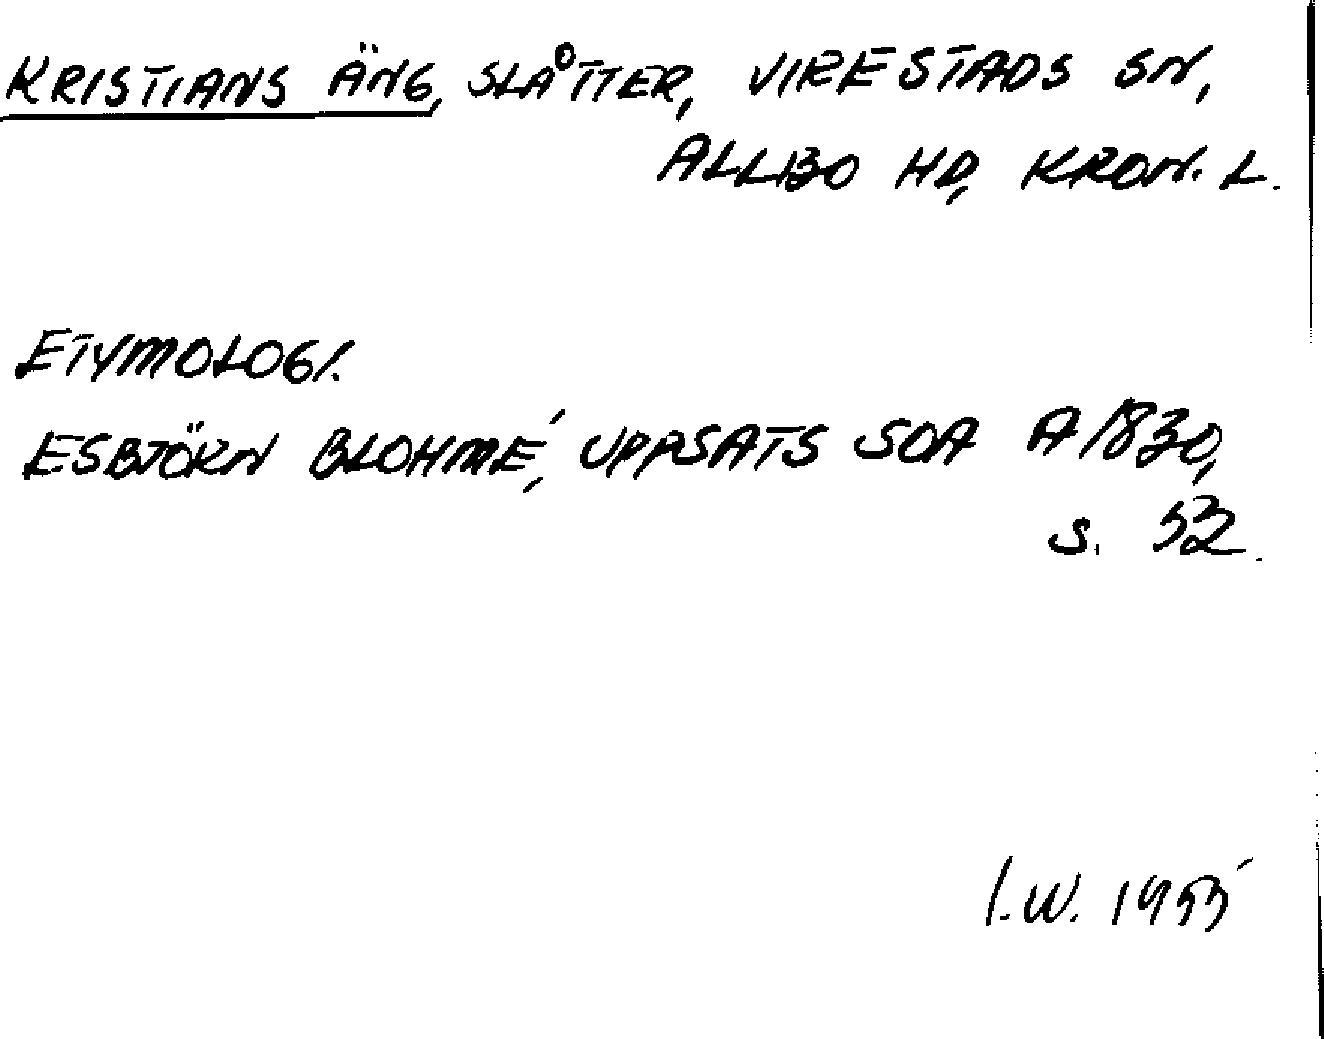 KRISTIANS ÄNG, SLÅTTER, VIRESTADS SN,
ALLBO HD, KRON. L.
ETYMOLOGI.
ESBJÖRN BLOHMÉ, UPPSATS SOA A1830,
S. 32.
I.W. 1955